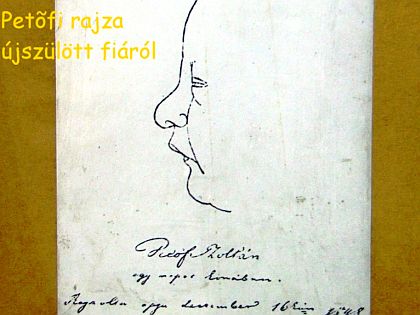 Petõfi rajza
újszülött fiáról
Petőfi Zoltán
egy napos korában.
Rajzolta apja december 16kán 1848